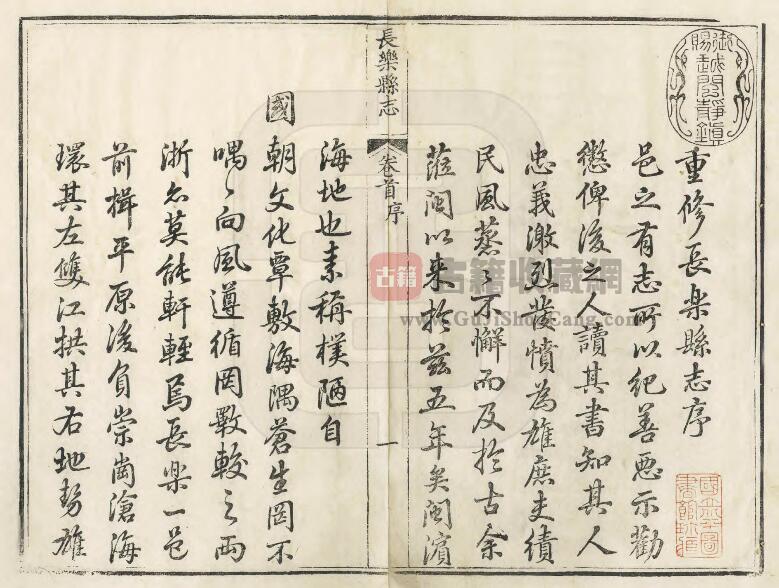 重修長樂縣志序
邑之有志所以紀善惡示勸
懲俾後之人讀其書知其人
忠義激烈發憤為雄庶吏績
民風蒸〻不懈而及於古余
蒞閩以來於茲五年矣閩濱
長樂縣志
卷首序
一
海地也素稱樸陋自
國朝文化覃敷海隅蒼生罔不
喁〻向風遵循罔斁較之兩
浙尒莫能軒輊焉長樂一邑
前揖平原後負崇崗滄海
環其左雙江拱其右地勢雄
御賜越閩靜鎮
古籍
古籍收藏網
www.GujiShouCang.com